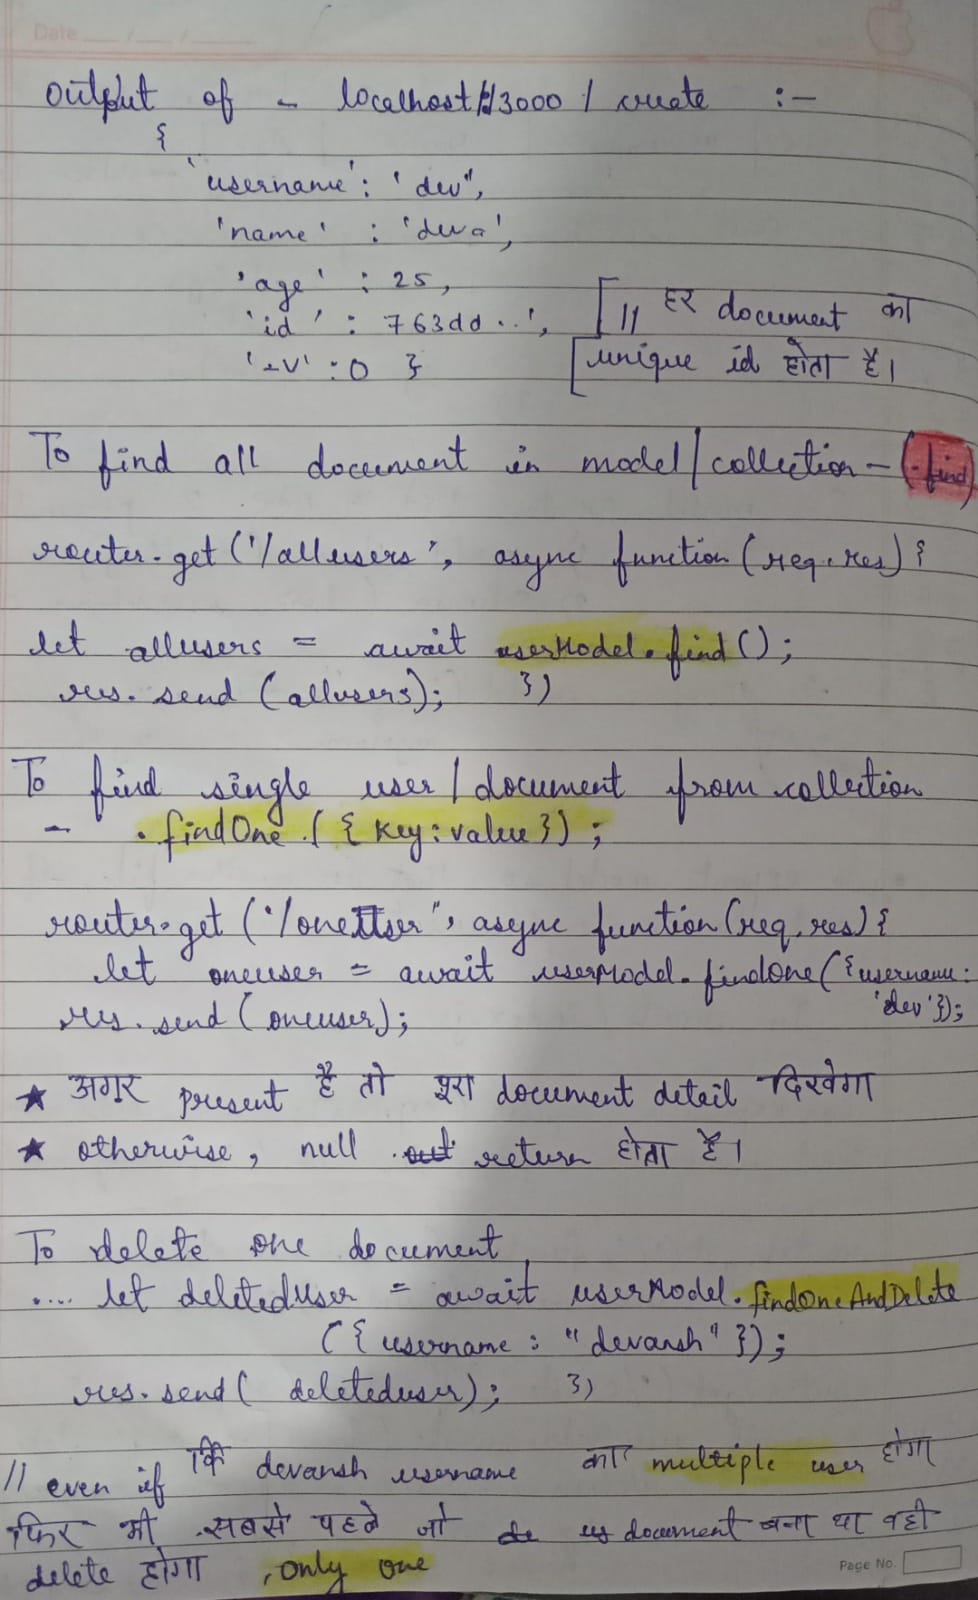 Date
output of - localhost/3000 / create :-
{
'username': 'dev",
'name' : 'deva',
'age' : 25,
'id' : 763dd..', [ // हर document का
'-v' : 0 } [ unique id होता है।
To find all document in model/collection - (.find)
router.get('/allusers', async function(req.res) {
let allusers = await userModel.find();
res.send (allusers); })
To find single user/document from collection
- .findOne.({key:value});
router.get ('/oneUser", async function(req, res) {
let oneuser = await userModel.findOne({username:
'dev'});
res.send(oneuser);
★ अगर present है तो पूरा document detail दिखेगा
★ otherwise, null return होता है।
To delete one document
.... let deletedUser = await userModel.findOneAndDelete
({username : "devansh" });
res.send( deleteduser); })
// even if कि devansh username का multiple user होगा
फिर भी सबसे पहले जो document बना था वही
delete होगा , only one
Page No.